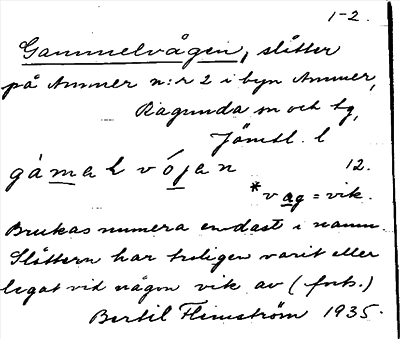 1-2.
Gammelvågen, slåtter
på Ammer n:r 2 i byn Ammer,
Ragunda sn och tg,
Jämtl. l
gámalvójan 12.
*vag = vik.
Brukas numera endast i namn
Slåttern har troligen varit eller
legat vid någon vik av (forts.)
Bertil Flemström 1935.